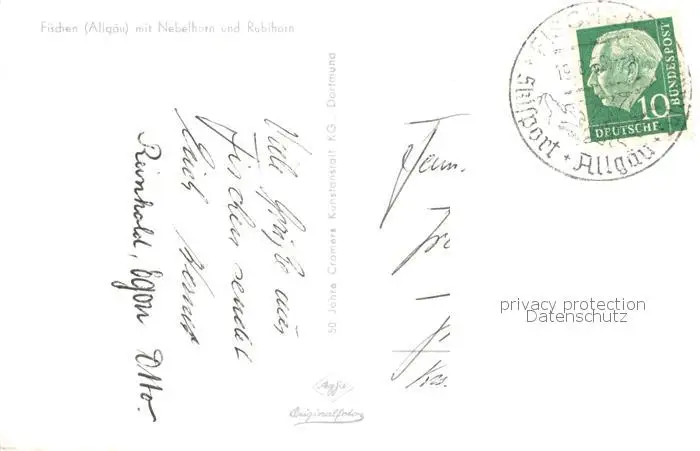 Fischen (Allgäu) mit Nebelhorn und Rubihorn
Viele Grüße aus
Fischen sendet
Euch Werner
Reinhold, Egon Otto.
50 Jahre Cramers Kunstanstalt KG. Dortmund
Agfa
Originalfoto
FISCHEN
Skisport + Allgäu +
10
DEUTSCHE
BUNDESPOST
privacy protection
Datenschutz